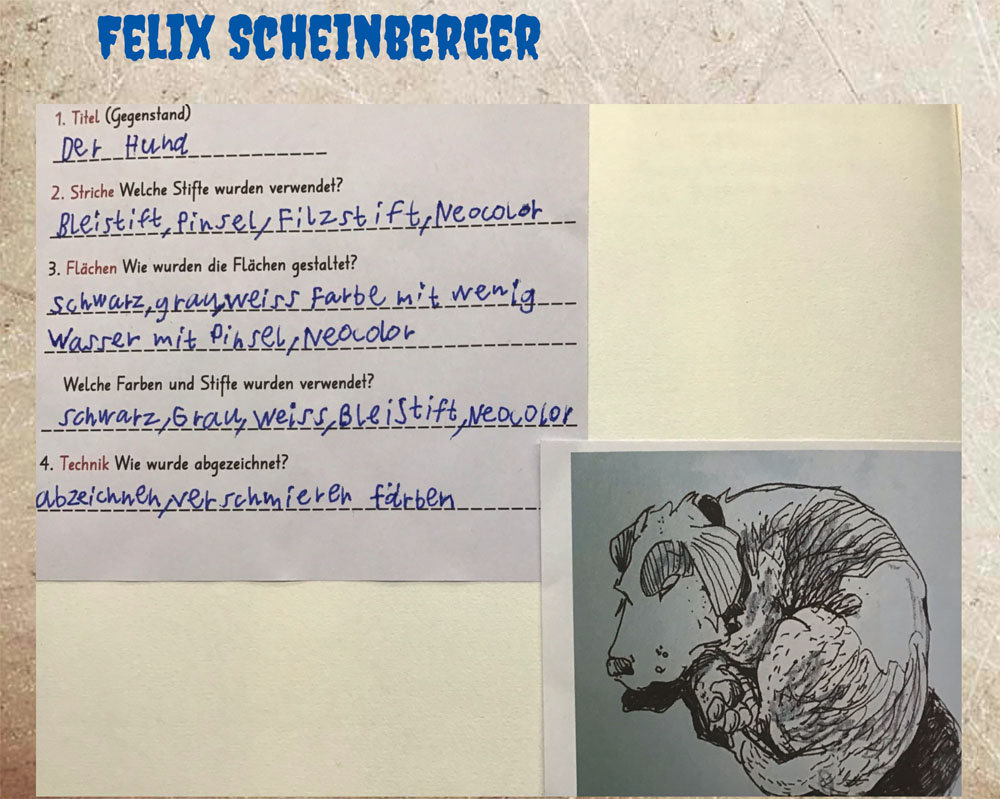 FELIX SCHEINBERGER
1. Titel (Gegenstand)
Der Hund
2. Striche Welche Stifte wurden verwendet?
Bleistift, Pinsel, Filzstift, Neocolor
3. Flächen Wie wurden die Flächen gestaltet?
schwarz, grau, weiss Farbe mit wenig
Wasser mit Pinsel, Neocolor
Welche Farben und Stifte wurden verwendet?
schwarz, Grau, Weiss, Bleistift, Neocolor
4. Technik Wie wurde abgezeichnet?
abzeichnen, verschmieren färben